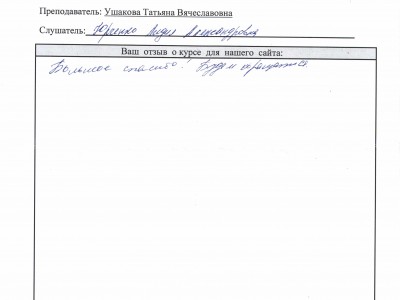 Преподаватель: Ушакова Татьяна Вячеславовна
Слушатель: Юрченко Лидия Александровна
Ваш отзыв о курсе для нашего сайта:
Большое спасибо! Будем обращаться